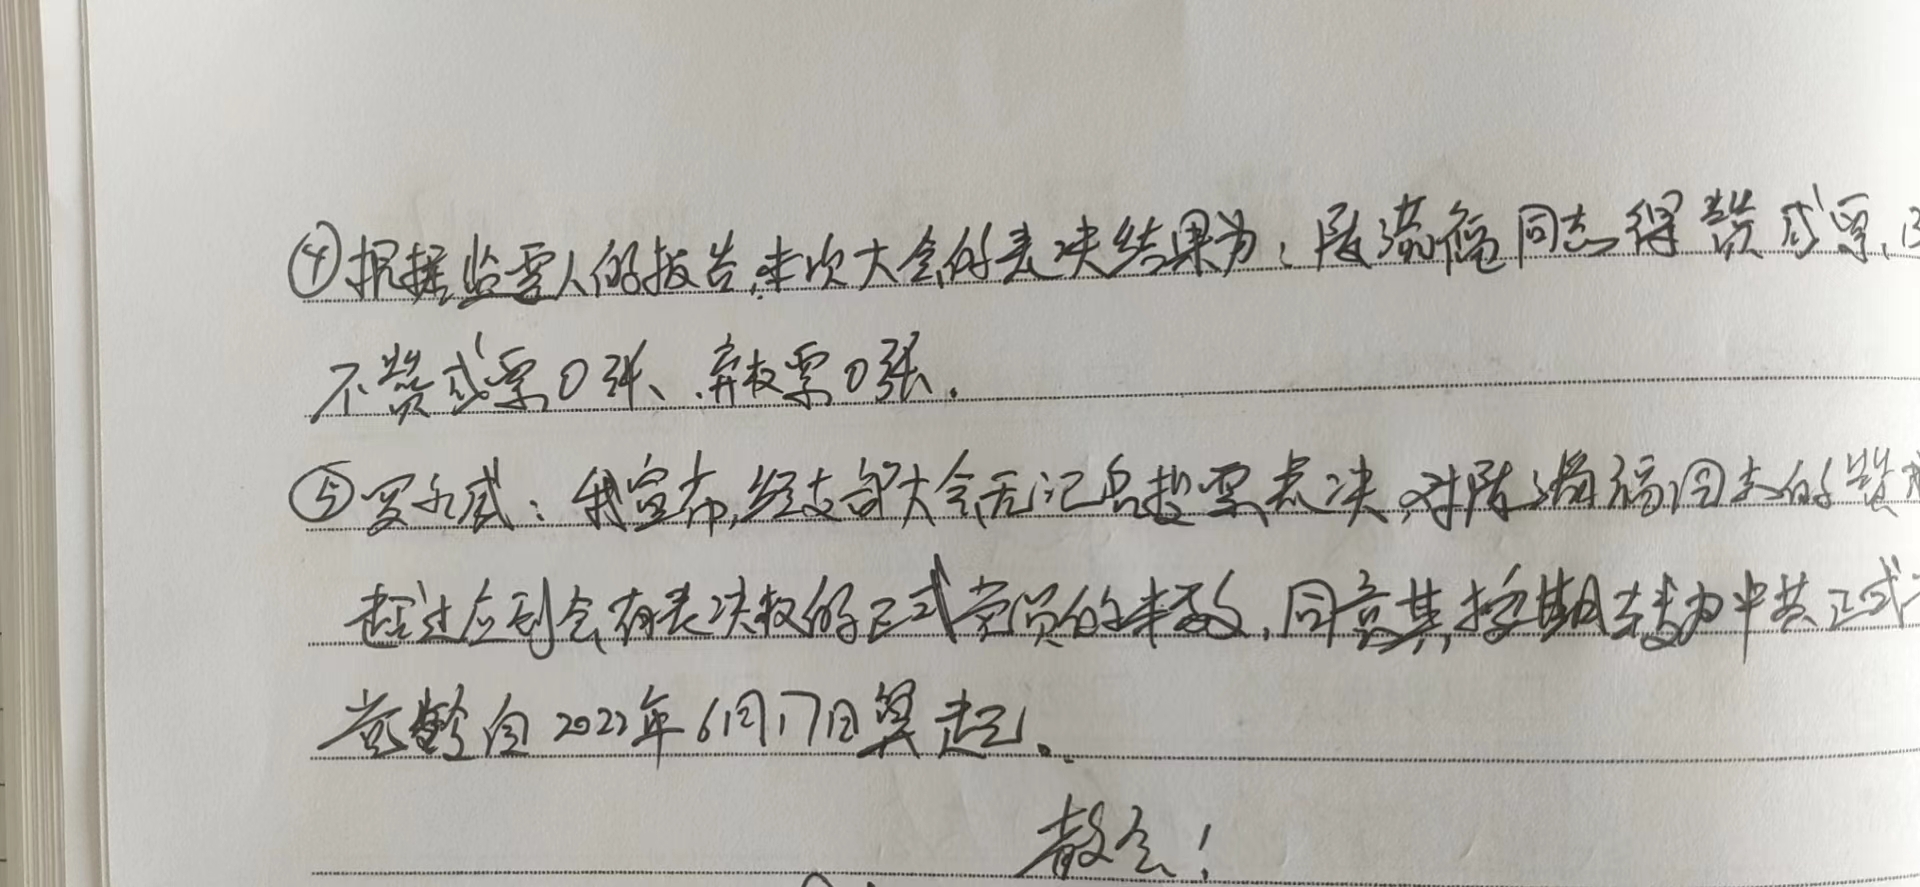 ④根据监票人的报告,本次大会的表决结果为:陈满福同志得赞成票
不赞成票0张、弃权票0张。
⑤罗永威:我宣布,经支部大会无记名投票表决,对陈满福同志的赞成
超过应到会有表决权的正式党员的半数,同意其按期转为中共正式
党龄自2022年6月17日算起。
散会!